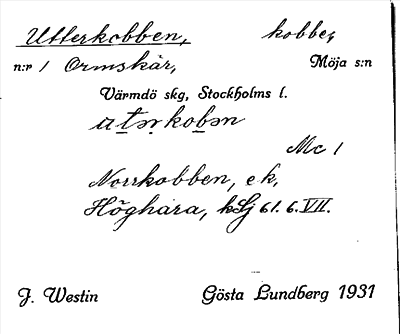 Utterkobben, kobbe,
n:r 1 Ormskär, Möja s:n
Värmdö skg, Stockholms l.
utərkobən
Mc 1
Norrkobben, ek,
Höghara, kSj 61. 6. VII.
J. Westin Gösta Lundberg 1931